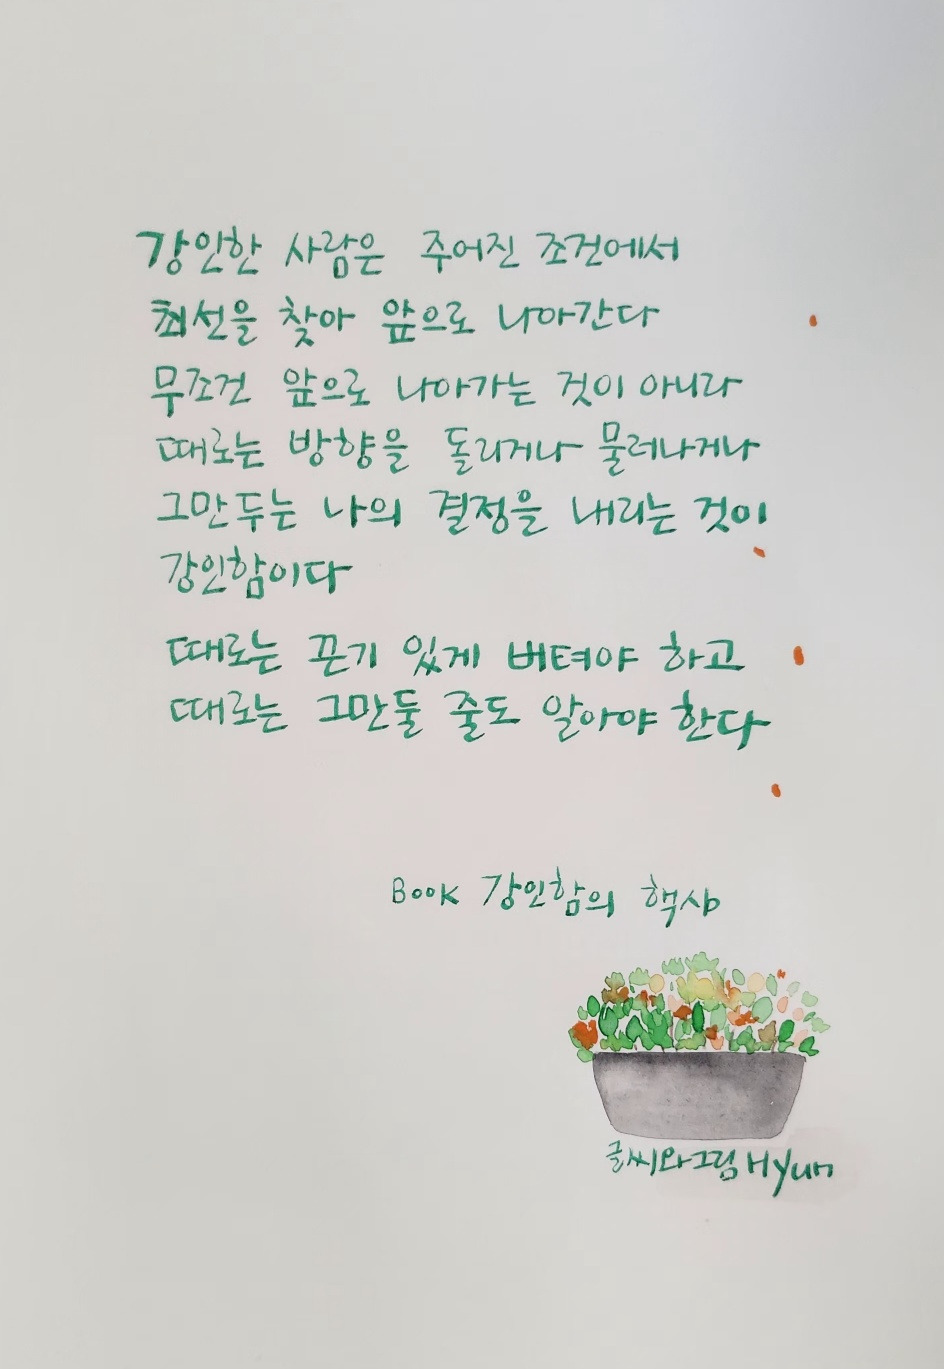 강인한 사람은 주어진 조건에서
최선을 찾아 앞으로 나아간다
무조건 앞으로 나아가는 것이 아니라
때로는 방향을 돌리거나 물러나거나
그만두는 나의 결정을 내리는 것이
강인함이다
때로는 끈기 있게 버텨야 하고
때로는 그만둘 줄도 알아야 한다
Book 강인함의 핵심
글씨와그림 Hyun